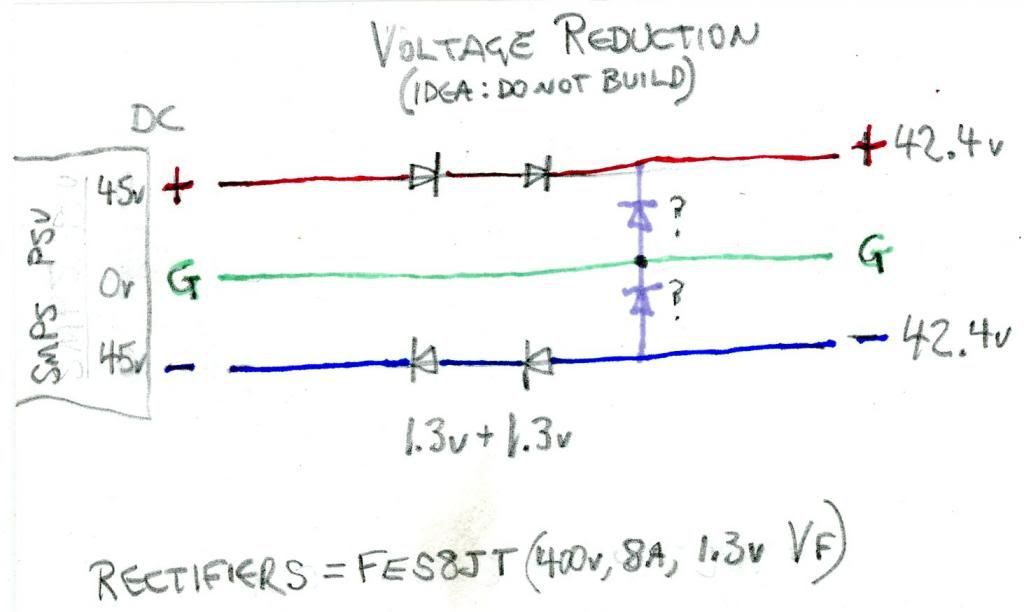 VOLTAGE REDUCTION
(IDEA: DO NOT BUILD)
DC
45v + + 42.4v
SMPS PSU
0v G G
45v - - 42.4v
?
?
1.3v + 1.3v
RECTIFIERS = FES8JT (400v, 8A, 1.3v VF)